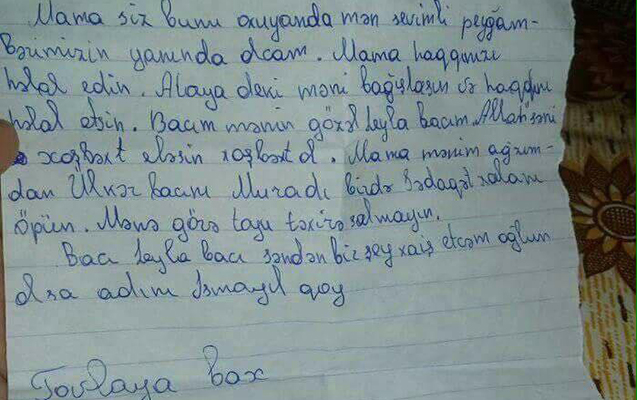 Mama siz bunu oxuyanda mən sevimli peyğəm-
bərimizin yanında olcam. Mama haqqınızı
halal edin. Ataya deni məni bağışlasın və haqqını
halal etsin. Bacım mənim gözəl Leyla bacım Allah səni
xoşbəxt eləsin xoşbəxt ol. Mama mənim ağzım-
dan Ülkər bacım Muradı birdə Sədaqət xalanı
öpün. Mənə görə toyu təxirə salmayın.
Bacı Leyla bacı səndən bir şey xaiş etcəm oğlun
olsa adını İsmayıl qoy
Tovlaya bax